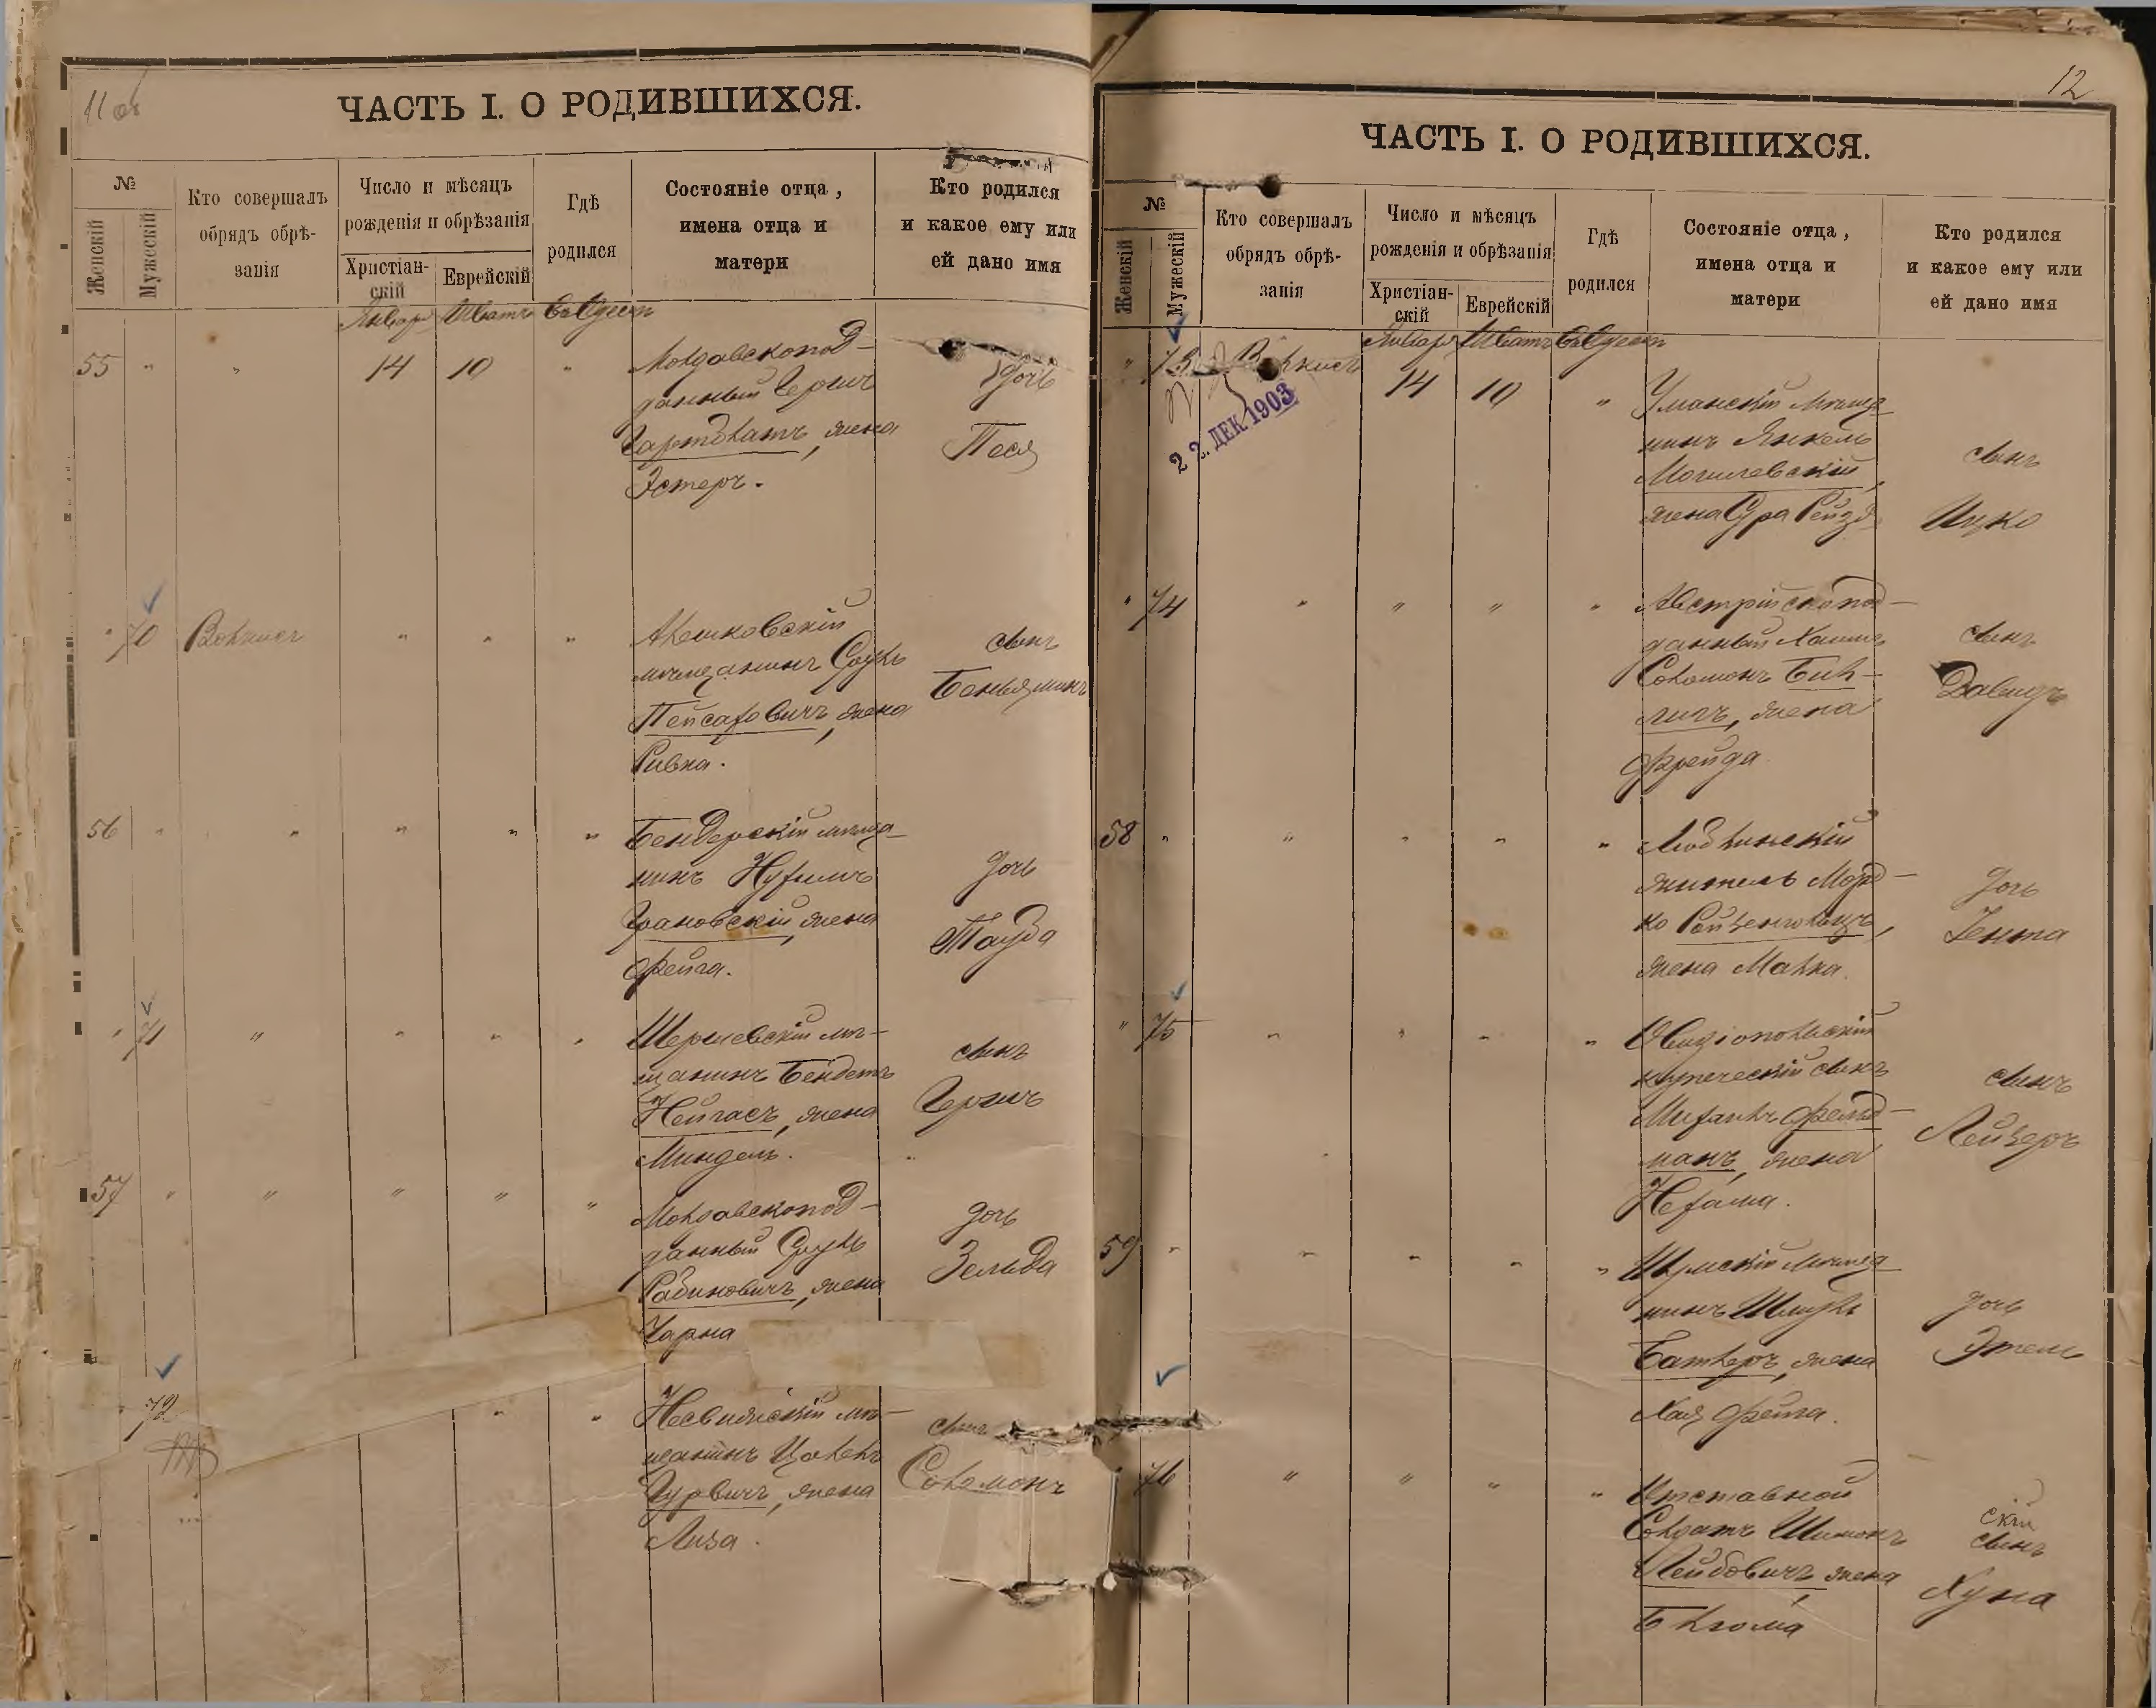 11 об
ЧАСТЬ I. О РОДИВШИХСЯ.
№
Женскій
Мужескій
Кто совершалъ
обрядъ обрѣ-
занія
Число и мѣсяцъ
рожденія и обрѣзанія
Христіан-
скій
Еврейскій
Гдѣ
родился
Состояніе отца,
имена отца и
матери
Кто родился
и какое ему или
ей дано имя
Январь Шватъ Въ Одессѣ
55 " " 14 10 "
Молдавскопод-
данный Гершъ
жена
Эстеръ.
дочь
Песя
" 70 " " "
Аккмановскій
мѣщанинъ Сруль
Пейсаховичъ, жена
Ривка.
сынъ
Беньяминъ
56 " " " " "
Бендерскій мѣща-
нинъ Нухимъ
Грановскій, жена
Фейга.
дочь
Тауба
" 71 " " " "
Шершевскій мѣ-
щанинъ Бендетъ
жена
Миндель.
сынъ
Гершъ
57 " " " " "
Молдавскопод-
данный Сруль
Рабиновичъ, жена
Чарна
дочь
Зельда
" 72 " "
Несвижскій мѣ-
щанинъ
Гурвичъ, жена
Лиза.
сынъ
Соломонъ
12
ЧАСТЬ I. О РОДИВШИХСЯ.
№
Женскій
Мужескій
Кто совершалъ
обрядъ обрѣ-
занія
Число и мѣсяцъ
рожденія и обрѣзанія
Христіан-
скій
Еврейскій
Гдѣ
родился
Состояніе отца,
имена отца и
матери
Кто родился
и какое ему или
ей дано имя
Январь Шватъ Въ Одессѣ
" 73 14 10 "
22. ДЕК 1903
Уманскій мѣща-
нинъ Янкель
Могилевскій,
жена Сура Рейзя
сынъ
Ицко
" 74 " " " "
Австрійскопод-
данный Хаимъ
Соломонъ
жена
Фрейда
сынъ
Давидъ
58 " " " " "
житель Морд-
ко Рейзенгольцъ,
жена Малка.
дочь
Гента
" 75 " " " "
Овидіопольскій
купеческій сынъ
Михаилъ Фельд-
манъ, жена
Нехама.
сынъ
Лейзеръ
59 " " " " "
Шумскій мѣща-
нинъ Шмуль
жена
Хая Фейга.
дочь
Этель
76 " " " "
Отставной
Солдатъ Шимонъ
Лейбовичъ, жена
Блюма
скій
сынъ
Хуна